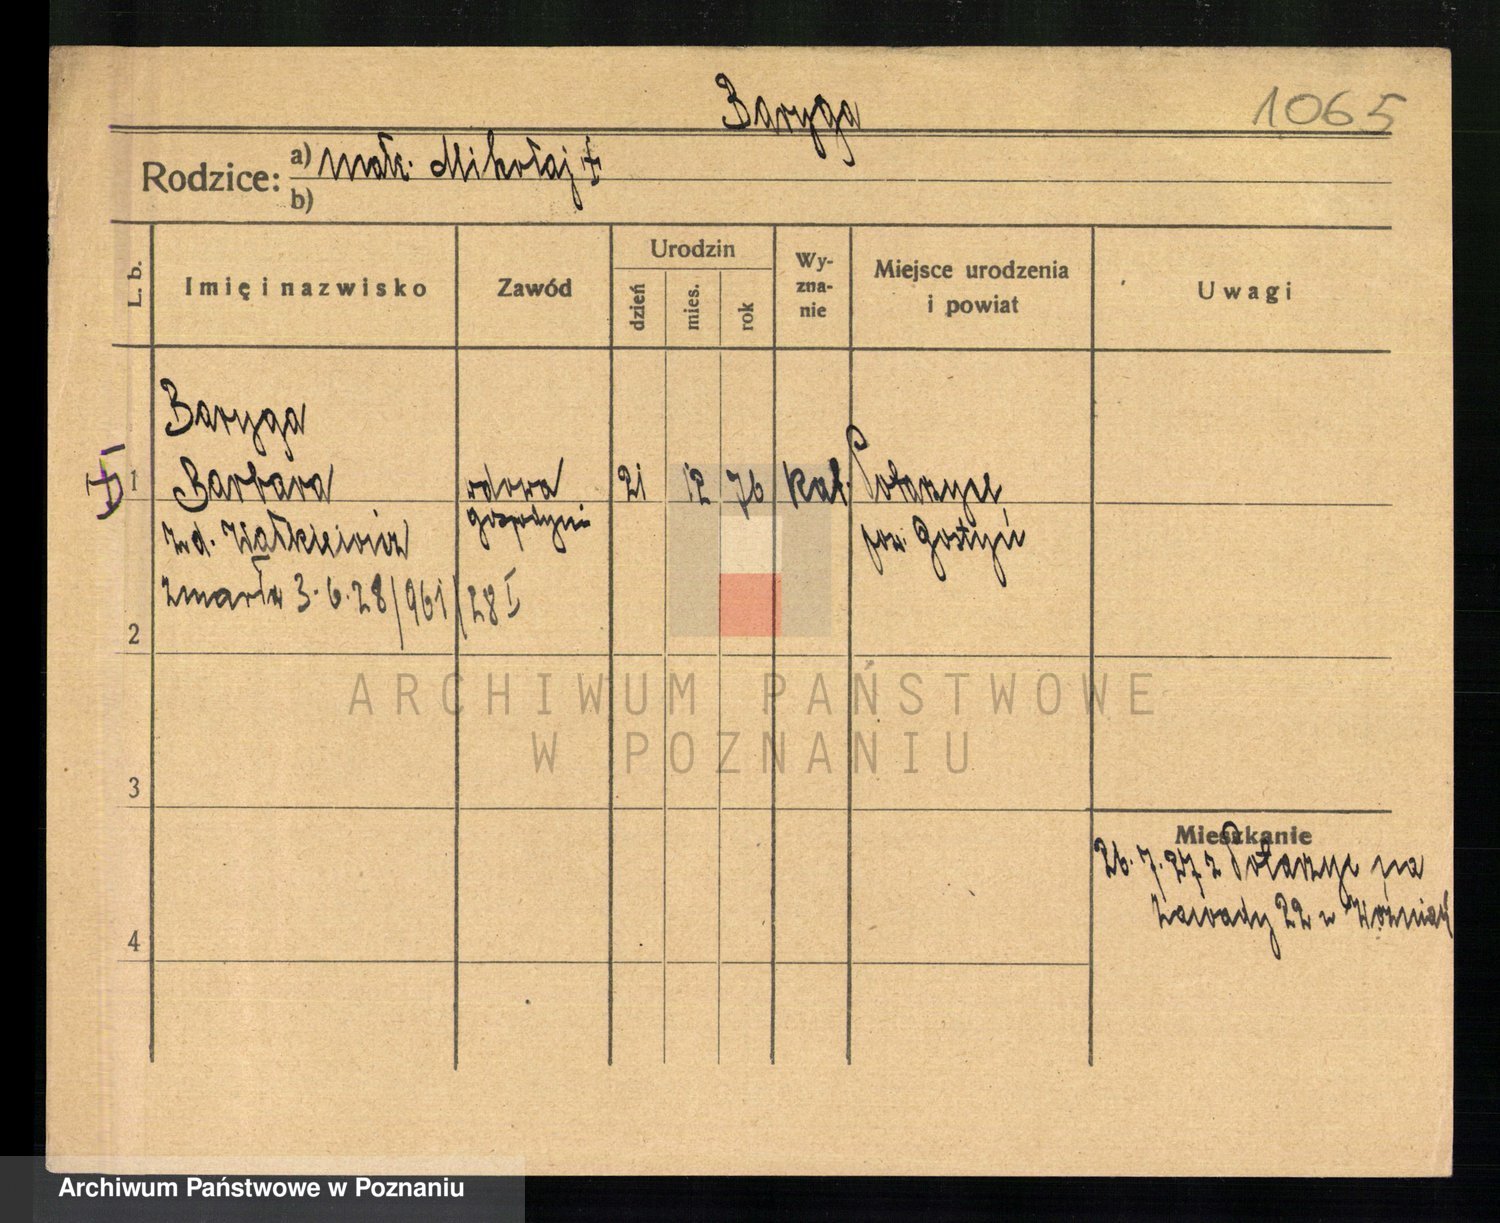 Baryga
1065
Rodzice: a) małż. Mikołaj +
b)
L. b.
Imię i nazwisko
Zawód
Urodzin
dzień
mies.
rok
Wy-
zna-
nie
Miejsce urodzenia
i powiat
Uwagi
Baryga
1 Barbara wdowa 21 12 76 kat. Potarzyce
gospodyni
pow. Gostyń
z d.
zmarła 3.6.28/961/28 I
2
3
4
Mieszkanie
26.7.27 z Potarzyc na
Zawady 22 u Woźniak
ARCHIWUM PAŃSTWOWE
W POZNANIU
Archiwum Państwowe w Poznaniu